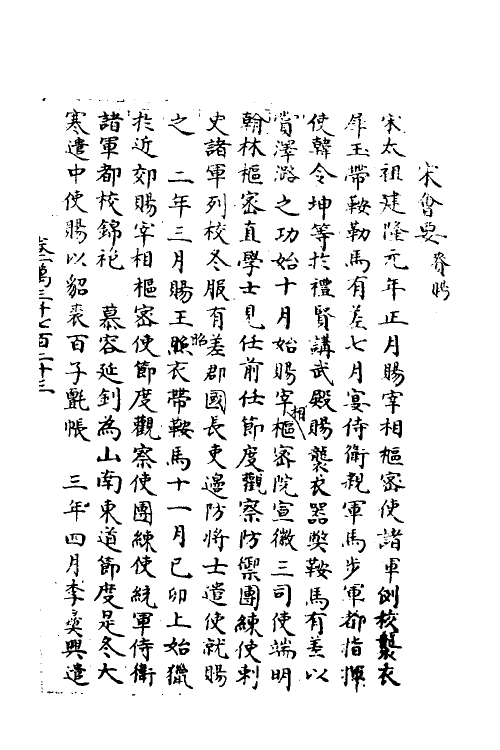 宋會要 眷賜
宋太祖建隆元年正月賜宰相樞密使諸軍列校襲衣
犀玉帶鞍勒馬有差七月宴侍衛親軍馬步軍都指揮
使韓令坤等於禮賢講武殿賜襲衣器獘鞍馬有差以
賞澤潞之功始十月始賜宰相樞密院宣徽三司使端明
翰林樞密直學士見任前任節度觀察防禦團練使刺
史諸軍列校冬服有差郡國長吏邊防將士遣使就賜
之 二年三月賜王照昭衣帶鞍馬十一月己卯上始獵
於近郊賜宰相樞密使節度觀察使團練使統軍侍衛
諸軍都校錦袍 慕容延釗為山南東道節度是冬大
寒遣中使賜以貂裘百子氈帳 三年四月李彝興遣
卷一萬三千七百二十三